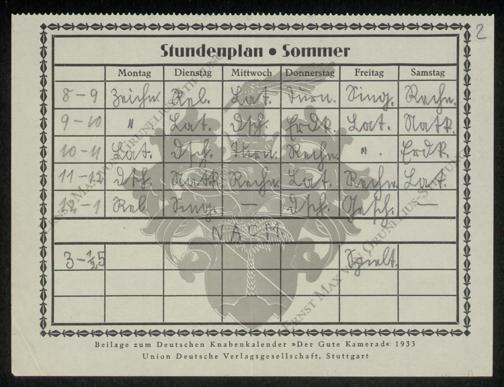 2
Stundenplan • Sommer
Montag Dienstag Mittwoch Donnerstag Freitag Samstag
8-9 Zeichn. Rel. Lat. Turn. Sing. Rechn.
9-10 " Lat. Dtsch. Erdk. Lat. Natk.
10-11 Lat. Dtsch. Turn. Rechn. ". Erdk.
11-12 Dtsch. Natk. Rechn. Lat. Rechn. Lat.
12-1 Rel. Sing. — Dtsch. Gesch. —
NACM
3-½5 Spielt.
Beilage zum Deutschen Knabenkalender »Der Gute Kamerad« 1933
Union Deutsche Verlagsgesellschaft, Stuttgart